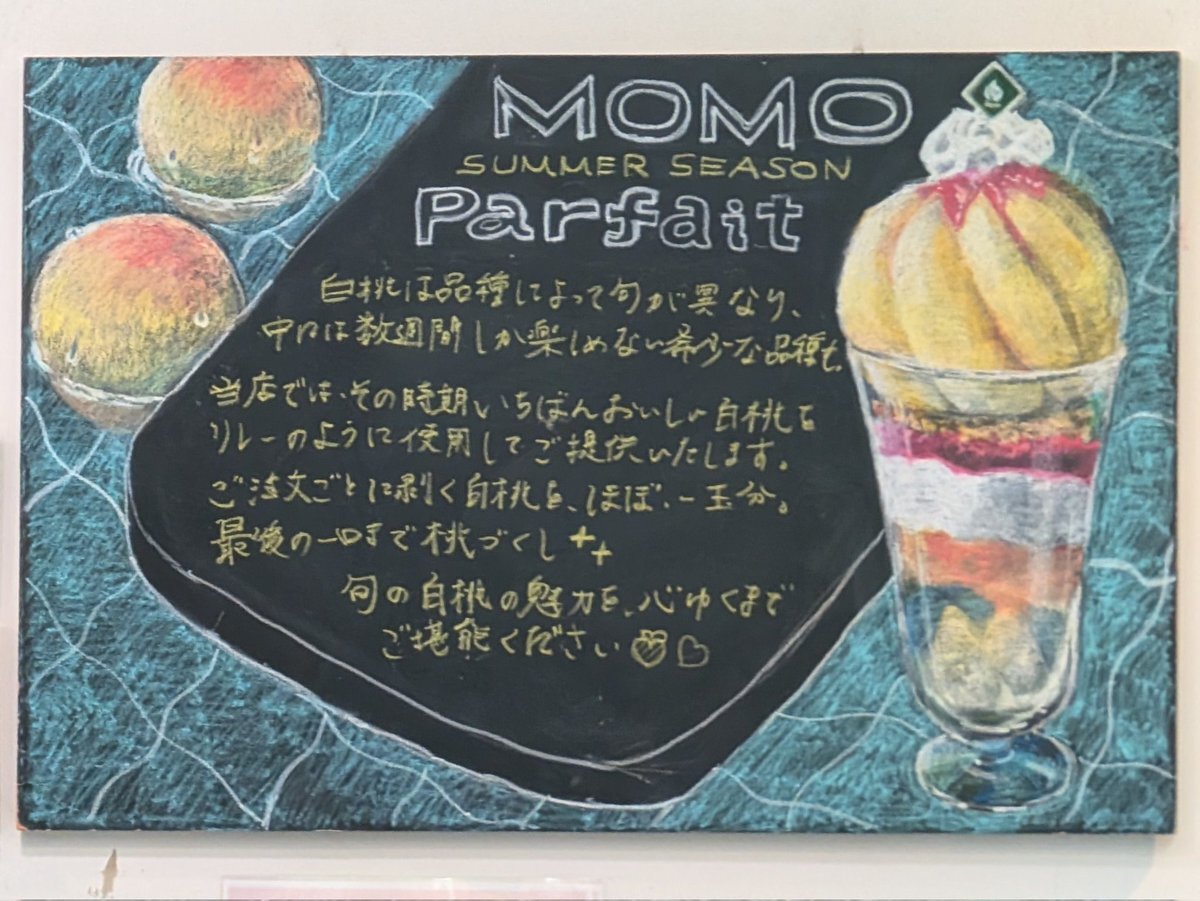 MOMO
SUMMER SEASON
Parfait
白桃は品種によって旬が異なり、
中には数週間しか楽しめない希少な品種も。
当店では、その時期いちばんおいしい白桃を
リレーのように使用してご提供いたします。
ご注文ごとに剥く白桃を、ほぼ、一玉分。
最後の一口まで桃づくし
旬の白桃の魅力を、心ゆくまで
ご堪能ください